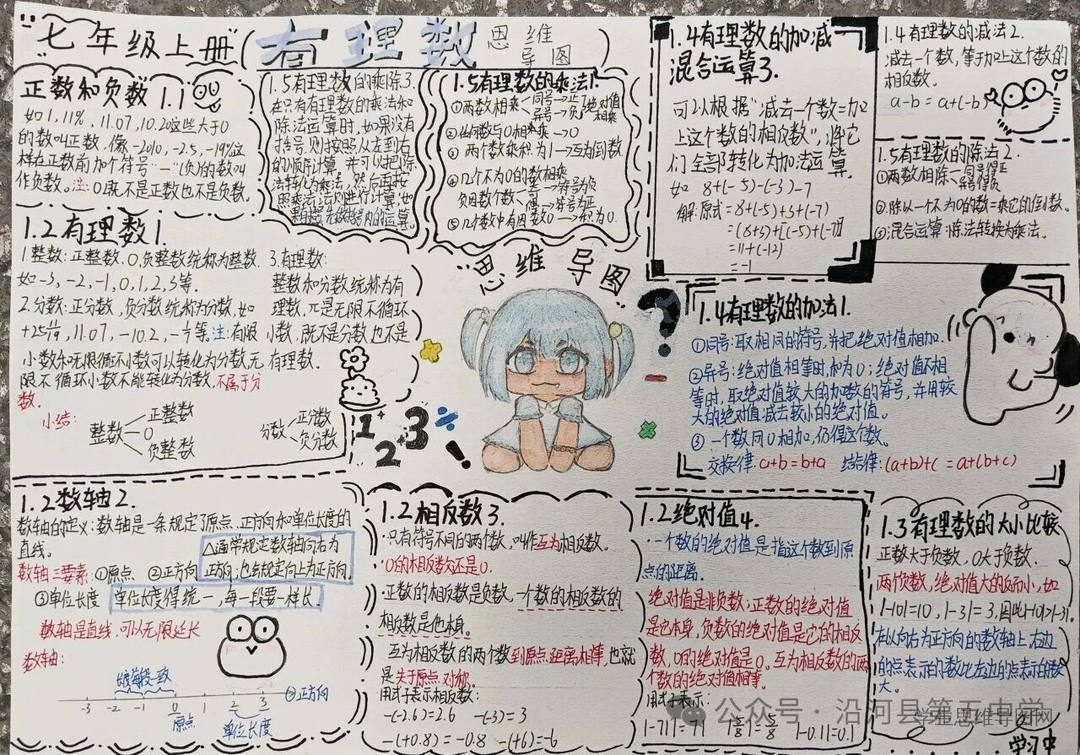 "七年级上册"
有理数
思维
导图
正数和负数 1.1
如1,11%,11.07,10.2这些大于0
的数叫正数.像-2010,-2.5,-19%这
样在正数前加个符号"-"(负)的数叫
作负数。注:0既不是正数也不是负数。
1.5有理数的乘除3.
在只有有理数的乘法和
除法运算时,如果没有
括号,则按照从左到右
的顺序计算,并可以把除
法转化为乘法,然后再按
照乘法法则进行计算,如
1.5有理数的乘法1.
①两数相乘 同号→正 绝对值
异号→负 相乘
②任何数与0相乘→0
③两个数乘积为1→互为倒数
④几个不为0的数相乘
负因数个数 奇→符号为负
偶→符号为正
⑤几个数中有因数0→积为0.
1.4有理数的加减
混合运算3.
可以根据"减去一个数=加
上这个数的相反数",将它
们全部转化为加法运算
如 8+(-5)-(-3)-7
解:原式=8+(-5)+3+(-7)
=(8+3)+[(-5)+(-7)]
=11+(-12)
=-1
1.4有理数的减法2.
减去一个数,等于加上这个数的
相反数.
a-b=a+(-b)
1.5有理数的除法2.
①两数相除 同号得正
异号得负
②除以一个不为0的数=乘它的倒数.
③混合运算:除法转换为乘法.
1.2有理数1.
1.整数:正整数.0,负整数统称为整数.
如-3,-2,-1,0,1,2,3等.
2.分数:正分数,负分数统称为分数,如
11.07,-10.2 等.注:有限
小数和无限循环小数可以转化为分数,无
限不循环小数不能转化为分数,不属于分
数.
小结:
整数 正整数
0
负整数
分数 正分数
负分数
3.有理数:
整数和分数统称为有
理数,π是无限不循环
小数,既不是分数也不是
有理数.
"思维导图"
1 2 3
1.4有理数的加法1.
①同号:取相同的符号,并把绝对值相加.
②异号:绝对值相等时,和为0;绝对值不相
等时,取绝对值较大的加数的符号,并用较
大的绝对值减去较小的绝对值。
③一个数同0相加,仍得这个数。
交换律:a+b=b+a 结合律:(a+b)+c=a+(b+c)
1.2数轴2.
数轴的定义:数轴是一条规定了原点、正方向和单位长度的
直线.
△通常规定数轴向右为
正方向,也会规定向上为正方向.
数轴三要素:①原点 ②正方向
③单位长度 单位长度得统一,每一段要一样长.
数轴是直线,可以无限延长
数轴:
-3 -2 -1 0 1 2 3 正方向
原点 单位长度
1.2相反数3.
·只有符号不同的两个数,叫作互为相反数.
·0的相反数还是0.
·正数的相反数是负数,一个数的相反数的
相反数是他本身.
·互为相反数的两个数到原点距离相等,也就
是关于原点对称.
用式子表示相反数:
-(-2.6)=2.6 -(-3)=3
-(+0.8)=-0.8 -(+6)=-6
1.2绝对值4.
·一个数的绝对值是指这个数到原
点的距离.
绝对值是非负数;正数的绝对值
是它本身,负数的绝对值是它的相反
数,0的绝对值是0。互为相反数的两
个数的绝对值相等。
用式子表示:
|-0.1|=0.1
1.3有理数的大小比较
正数大于负数,0大于负数.
两负数,绝对值大的反而小,如
|-10|=10,|-3|=3,因此
在以向右为正方向的数轴上,右边
的点表示的数比左边的点表示的数
大。
公众号·沿河县第五中学